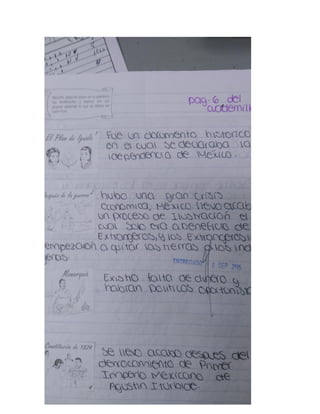 pag-6 del
cuadernillo
El Plan de Iguala
Fue un documento historico
en el cual se declaraba la
idependencia de Mexico.
después de la guerra
hubo una gran crisis
economica, Mexico llevo acabo
un proceso de Ilustración el
cual solo era a beneficio de
Extrangeros, y los Extrangeros
empezaron a quitar las tierras a los ind
genas.
ENTREGADO SEP
Monarquía
Existio falta de dinero y
habian politicos oportunista
Constitución de 1824
Se llevo acabo despues del
derrocamiento de Primer
Imperio Mexicano de
Agustin Iturbide.